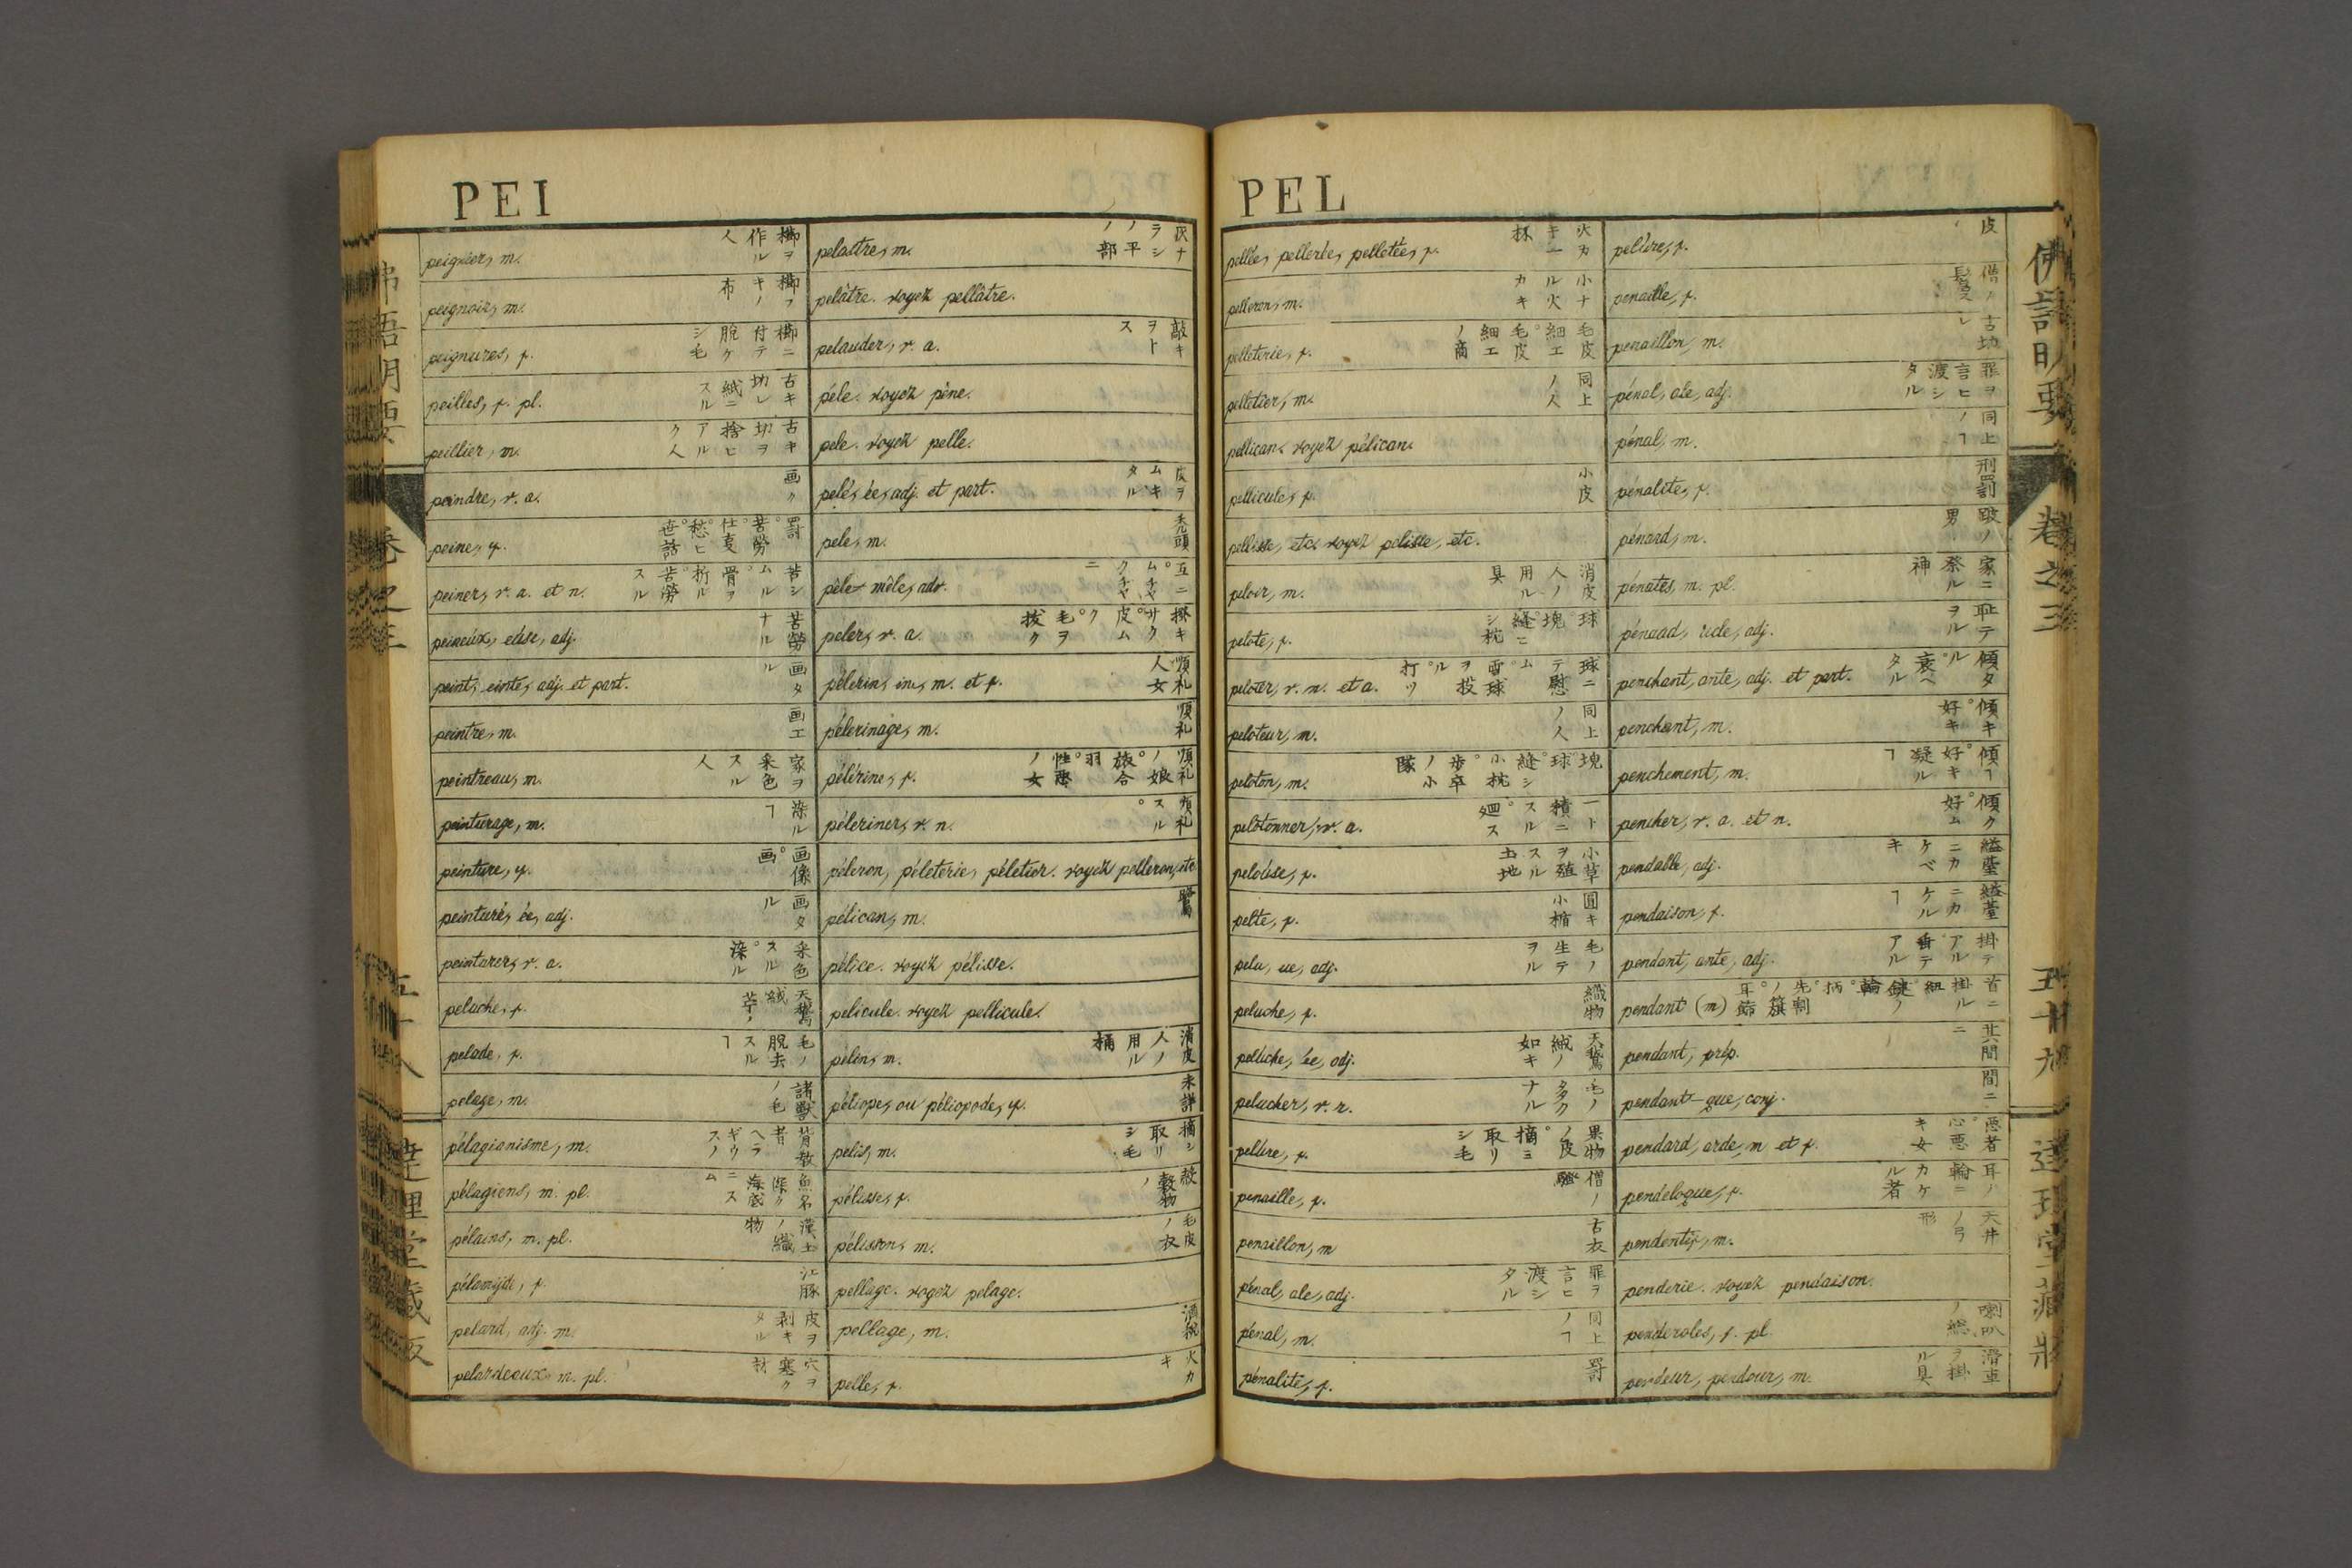 PEI
peignier, m. 櫛ヲ作ル人
peignoir, m.
peignures, f. 櫛ニ付テ脱ケシ毛
peilles, f. pl. 古キ切レ紙ニスル
peillier, m. 古キ切ヲ捨ヒアルク人
peindre, v. a. 画ク
peine, f. 罰。苦労。仕事。愁ヒ。世話
peiner, v. a. et n. 苦シムル。骨ヲ折ル。苦労スル
peineux, euse, adj. 苦労ナル
peint, einte, adj. et part. 画タル
peintre, m. 画工
peintreau, m. 家ヲ采色スル人
peinturage, m. 染ルヿ
peinture, f. 画像。画
peinturé, ée, adj. 画タル
peinturer, v. a. 采色スル。染ル
peluche, f.
pelade, f. 毛ノ脱去スルヿ
pelage, m. 諸獣ノ毛
pélagianisme, m.
pélagiens, m. pl. 魚名深ク海底ニスム
pélains, m. pl. 漢土ノ織物
pélamyde, f. 江豚
pelard, adj. m. 皮ヲ剥キタル
pelardeaux, m. pl. 穴ヲ塞ク材
pelastre, m. 灰ナラシノ平ノ部
pelâtre. voyez pellâtre.
pelauder, v. a. 敲キヲトス
péle. voyez pêne.
pele. voyez pelle.
pelé, ée, adj. et part. 皮ヲムキタル
pele, m. 禿頭
pêle-mêle, adv. 互ニ。ムチャクチャニ
peler, v. a. 掻キサク。皮ムク。毛ヲ抜ク
pélerin, ine, m. et f. 順礼人女
pélerinage, m. 順礼
pélérine, f.
péleriner, v. n. 順礼スル。
péleron, péleterie, péletier. voyez pelleron, etc.
pélican, m.
pélice. voyez pélisse.
pelicule. voyez pellicule.
pélin, m. 消皮人ノ用ル桶
péliope, ou péliopode, f. 未詳
pelis, m. 摘ミ取リシ毛
pélisse, f.
pélisson, m. 毛皮ノ衣
pellage. voyez pelage.
pellage, m.
pelle, f. 火カキ
PEL
pellée, pellerée, pelletée, f. 火カキ一抔
pelleron, m. 小ナル火カキ
pelleterie, f. 毛皮細工。毛皮細工ノ商
pelletier, m. 同上ノ人
pellican. voyez pélican.
pellicule, f. 小皮
pellisse, etc. voyez pelisse, etc.
peloir, m. 消皮人ノ用ル具
pelote, f. 球。塊。縫ニシ枕
peloter, v. n. et a. 球ニテ慰ム。雪球ヲ投ル。打ツ
peloteur, m. 同上ノ人
peloton, m. 塊。球。縫シ小枕。歩卒ノ小隊
pelotonner, v. a. 一ト積ニスル。廻ス
pelouse, f. 小草ヲ殖スル土地
pelte, f. 圓キ小楯
pelu, ue, adj. 毛ノ生テヲル
peluche, f. 織物
peluché, ée, adj. 天鵞絨ノ如キ
pelucher, v. r. 毛ノ多クナル
pelure, f. 果物ノ皮。摘ミ取リシ毛
penaille, f.
penaillon, m 古衣
pénal, ale, adj. 罪ヲ言ヒ渡シタル
pénal, m. 同上ノヿ
pénalité, f. 罰
pelure, f. 皮
penaille, f.
penaillon, m.
pénal, ale, adj. 罪ヲ言ヒ渡シタル
pénal, m. 同上ノヿ
pénalité, f. 刑罰
pénard, m.
pénates, m. pl. 家ニ祭ル神
pénaud, aude, adj. 耻テヲル
penchant, ante, adj. et part. 傾タル。衰ヘタル
penchant, m. 傾キ。好キ
penchement, m. 傾ヿ。好キ凝ルヿ
pencher, v. a. et n. 傾ク。好ム
pendable, adj. 縊臺ニカケベキ
pendaison, f. 縊臺ニカケルヿ
pendant, ante, adj. 掛テアル。垂テアル
pendant (m)
pendant, prép. 其間ニ
pendant-que, conj. 間ニ
pendard, arde, m et f. 悪者。心悪キ女
pendeloque, f. 耳ノ輪ニカケル者
pendentif, m. 天井ノ弓形
penderie. voyez pendaison.
penderoles, f. pl. 喇叭ノ総
pendeur, pendour, m. 滑車ヲ掛ル具
佛語明要
巻之三
五十九
達理堂蔵版
五十八
達理堂蔵版